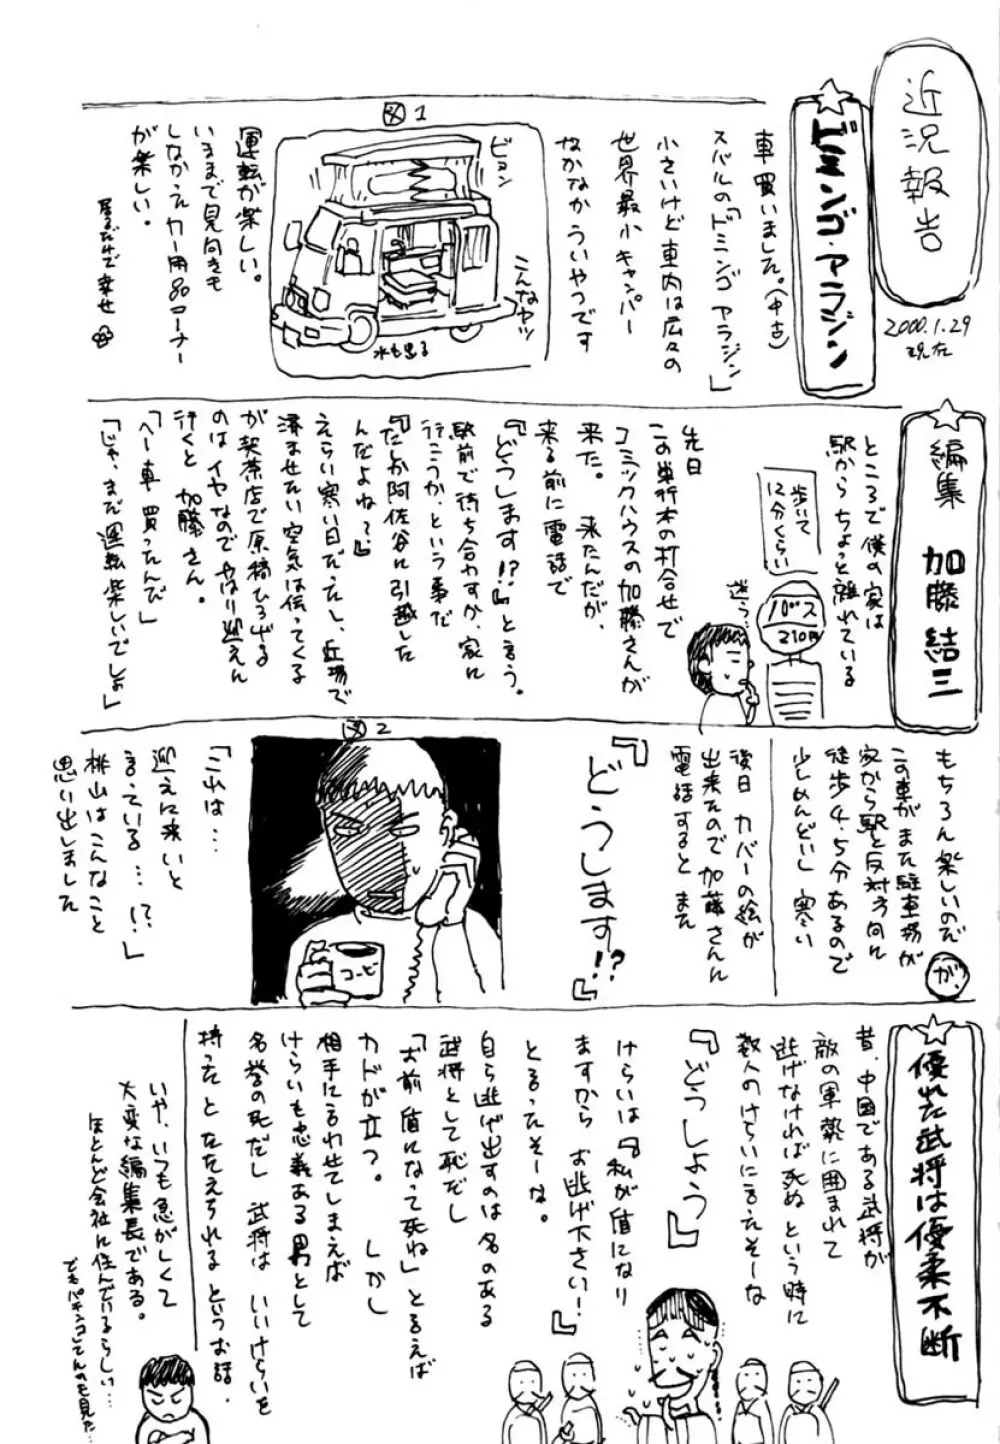 近況報告
2000.1.29
現在
ドミンゴ・アラジン
車買いました。(中古)
スバルの「ドミンゴ アラジン」
小さいけど車内は広々の
世界最小キャンパー
なかなかういやつです
図1
ビヨン
こんなヤツ
水も出る
運転が楽しい。
いままで見向きも
しなかったカー用品コーナー
が楽しい。
居るだけで幸せ
編集 加藤結三
ところで僕の家は
駅からちょっと離れている
歩いて
12分くらい
バス
210円
迷う…
先日
この単行本の打合せで
コミックハウスの加藤さんが
来た。来たんだが、
来る前に電話で
『どうします!?』と言う。
駅前で待ち合わすか、家に
行こうか、という事だ
『たしか阿佐谷に引越した
んだよね?』
えらい寒い日だったし、近場で
済ませたい空気は伝ってくる
が喫茶店で原稿ひろげる
のはイヤなのでやはり迎えに
行くと 加藤さん。
「へー車買ったんだ」
「じゃ、まだ運転楽しいでしょ」
もちろん楽しいのだ
が、
この車がまた駐車場が
家から駅と反対方向に
徒歩4、5分あるので
少しめんどいし寒い
後日カバーの絵が
出来たので加藤さんに
電話するとまた
『どうします!?』
図2
コーヒー
「これは…
迎えに来いと
言っている…!?」
桃山はこんなこと
思い出しました
優れた武将は優柔不断
昔、中国である武将が
敵の軍勢に囲まれて
逃げなければ死ぬという時に
数人のけらいに言ったそーな
『どうしよう』
けらいは『私が盾になり
ますからお逃げ下さい!』
と言ったそーな。
自ら逃げ出すのは名のある
武将として恥だし
「お前盾になって死ね」と言えば
カドが立つ。しかし
相手に言わせてしまえば
けらいも忠義ある男として
名誉の死だし 武将は いいけらいを
持ったとたたえられるというお話。
いや、いつも急がしくて
大変な編集長である。
ほとんど会社に住んでいるらしい…
でもパチンコしてんのも見た…